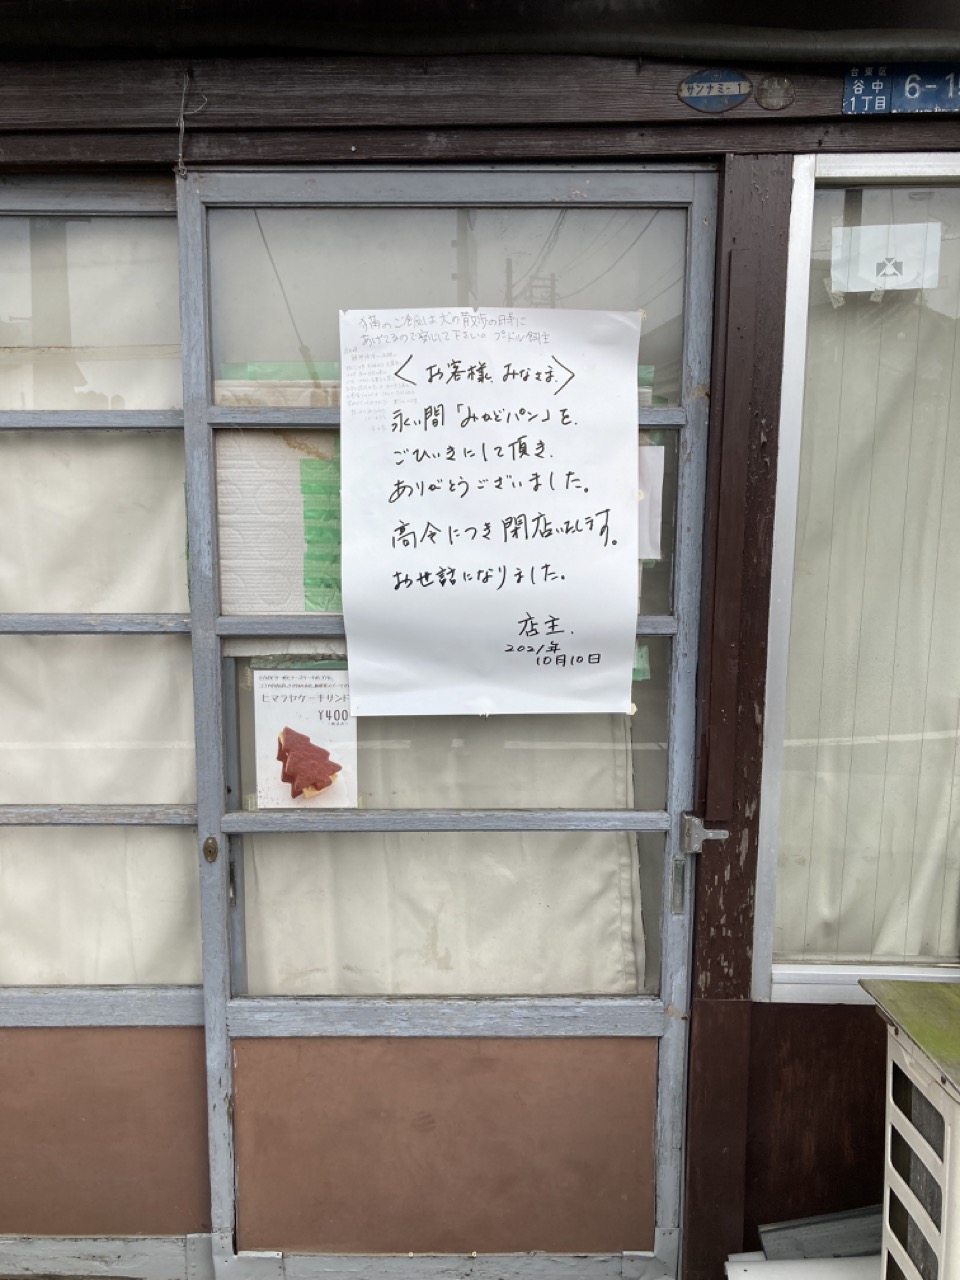 サンナミ-1
台東区
谷中
1丁目
6-1
猫のご飯は犬の散歩の時に
あげてるので安心して下さい。プードル飼主
〈お客様、みなさま、〉
永い間「みかどパン」を、
ごひいきにして頂き、
ありがとうございました。
高令につき閉店いたします。
お世話になりました。
店主、
2021年
10月10日
ヒマラヤケーキサンド
¥400